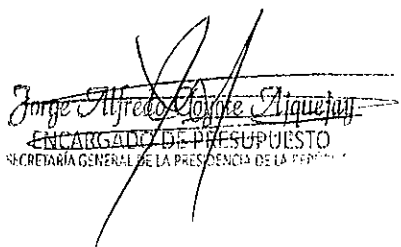 Jorge Alfredo Ajquejay
ENCARGADO DE PRESUPUESTO
SECRETARÍA GENERAL DE LA PRESIDENCIA DE LA